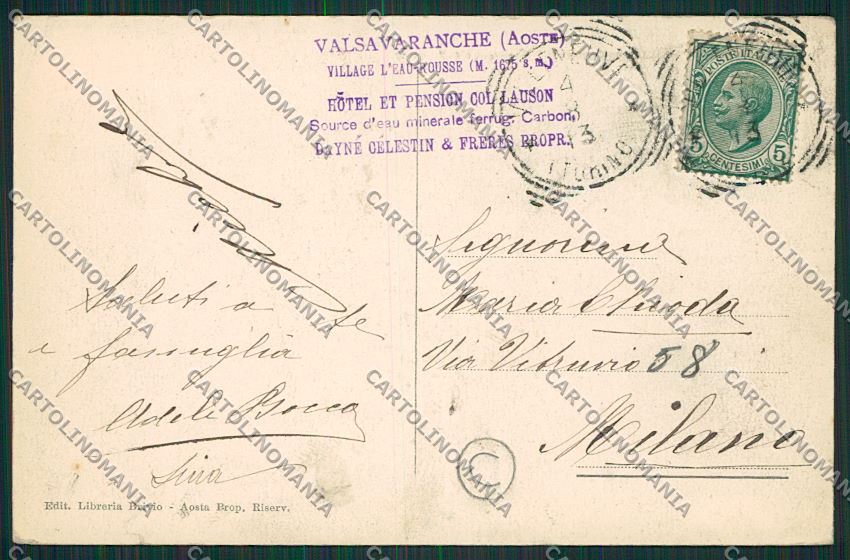 VALSAVARANCHE (AOSTE)
VILLAGE L'EAU-ROUSSE (M. 1675 s. m.)
HÔTEL ET PENSION COL LAUSON
Source d'eau minerale ferrug. Carbon.
DAYNÉ CELESTIN & FRERES PROPR.
(TORINO)
POSTE ITALIANE
5 CENTESIMI 5
Saluti a te
e famiglia
Adele Bocca
Signorina
Maria Chioda
Via Vitruvio 58
Milano
C
Edit. Libreria Brivio - Aosta Prop. Riserv.
CARTOLINOMANIA